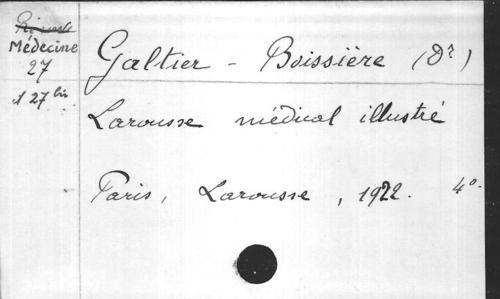 Médecine
27
et 27 bis
Galtier - Boissière (Dr)
Larousse médical illustré
Paris, Larousse, 1922. 4o.